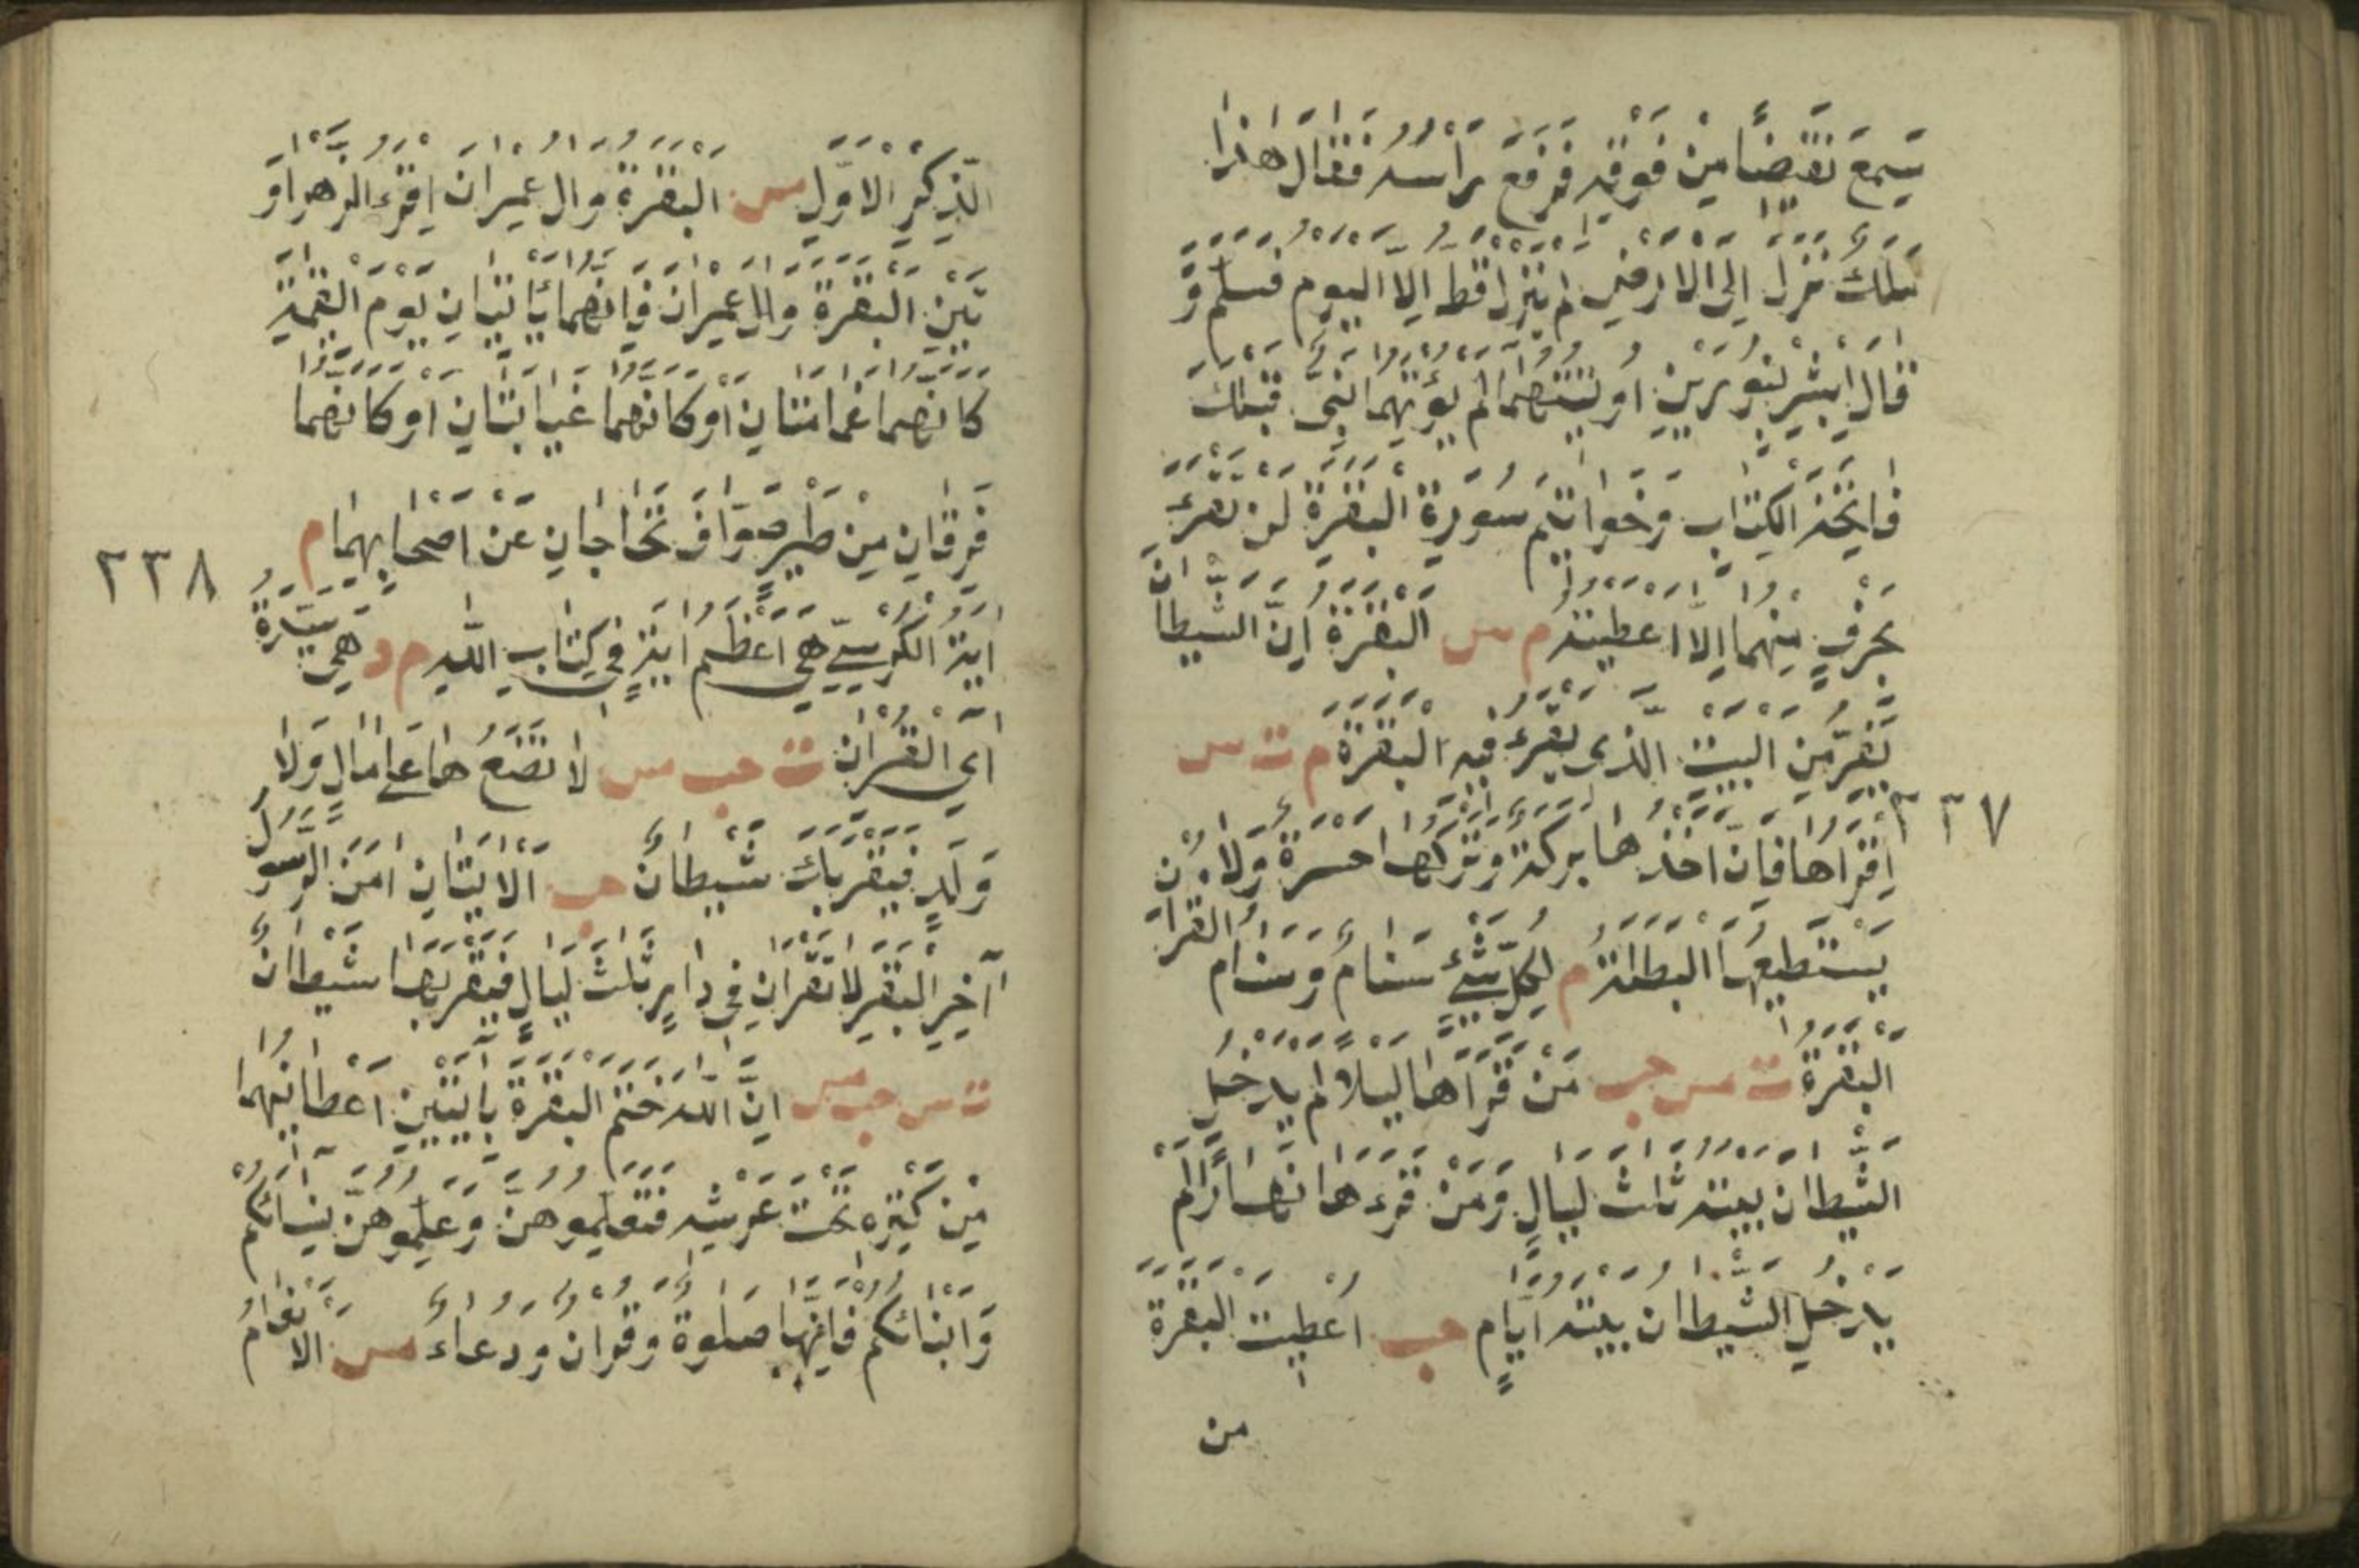 سَمِعَ نَقيضًا مِنْ فَوْقِهِ فَرَفَعَ رَأْسَهُ فَقَالَ هٰذَا
مَلَكٌ نَزَلَ اِلَى الْاَرْضِ لَمْ يَنْزِلْ قَطُّ اِلَّا الْيَوْمَ فَسَلَّمَ وَ
قَالَ اَبْشِرْ بِنُورَيْنِ اُوتيتَهُمَا لَمْ يُؤْتَهُمَا نَبِىٌّ قَبْلَكَ
فَاتِحَةِ الْكِتَابِ وَخَوَاتيمِ سُورَةِ الْبَقَرَةِ لَنْ تَقْرَءَ
بِحَرْفٍ مِنْهُمَا اِلَّا اُعْطيتَهُ م س اَلْبَقَرَةُ اِنَّ الشَّيْطَانَ
يَنْفِرُ مِنَ الْبَيْتِ الَّذى يُقْرَءُ فيهِ الْبَقَرَةُ م ت س
٢٣٧
اِقْرَأُهَا فَاِنَّ اَخْذَهَا بَرَكَةٌ وَتَرْكَهَا حَسْرَةٌ وَلَا
يَسْتَطيعُهَا الْبَطَلَةُ م لِكُلِّ شَيْءٍ سَنَامٌ وَسَنَامُ الْقُرْاٰنِ
الْبَقَرَةُ ت مس حب مَنْ قَرَأَهَا لَيْلًا لَمْ يَدْخُلِ
الشَّيْطَانُ بَيْتَهُ ثَلٰثَ لَيَالٍ وَمَنْ قَرَءَهَا نَهَارًا لَمْ
يَدْخُلِ الشَّيْطَانُ بَيْتَهُ اَيَّامٍ حب اُعْطيتُ الْبَقَرَةَ
من
الذِّكْرِ الْاَوَّلِ مس اَلْبَقَرَةُ وَاٰلُ عِمْرَانَ اِقْرَءُ الزَّهْرَاوَ
يْنِ الْبَقَرَةَ وَاٰلَ عِمْرَانَ فَاِنَّهُمَا يَأْتِيَانِ يَوْمَ الْقِيٰمَةِ
كَاَنَّهُمَا غَمَامَتَانِ اَوْ كَاَنَّهُمَا غَيَابَتَانِ اَوْ كَاَنَّهُمَا
فِرْقَانِ مِنْ طَيْرٍ صَوَافَّ تُحَاجَّانِ عَنْ اَصْحَابِهِمَا م
٢٣٨
اٰيَةُ الْكُرْسِيِّ هِيَ اَعْظَمُ اٰيَةٍ فى كِتَابِ اللّٰهِ م د هِيَ سَيِّدَةُ
اٰيِ الْقُرْاٰنِ ت حب مس لَا تَضَعُهَا عَلٰى مَالٍ وَلَا
وَلَدٍ فَيَقْرَبَكَ شَيْطَانٌ حب اَلْاٰيَتَانِ اٰمَنَ الرَّسُولُ
اٰخِرِ الْبَقَرَةِ لَا تُقْرَاٰنِ فى دَارٍ ثَلٰثَ لَيَالٍ فَيَقْرَبَهَا شَيْطَانٌ
ت س حب مس اِنَّ اللّٰهَ خَتَمَ الْبَقَرَةَ بِاٰيَتَيْنِ اَعْطَانيهِمَا
مِنْ كَنْزِهِ تَحْتَ عَرْشِهِ فَتَعَلَّمُوهُنَّ وَعَلِّمُوهُنَّ نِسَائَكُمْ
وَاَبْنَائَكُمْ فَاِنَّهَا صَلٰوةٌ وَقُرْاٰنٌ وَدُعَاءٌ مس اَلْاَنْعَامُ